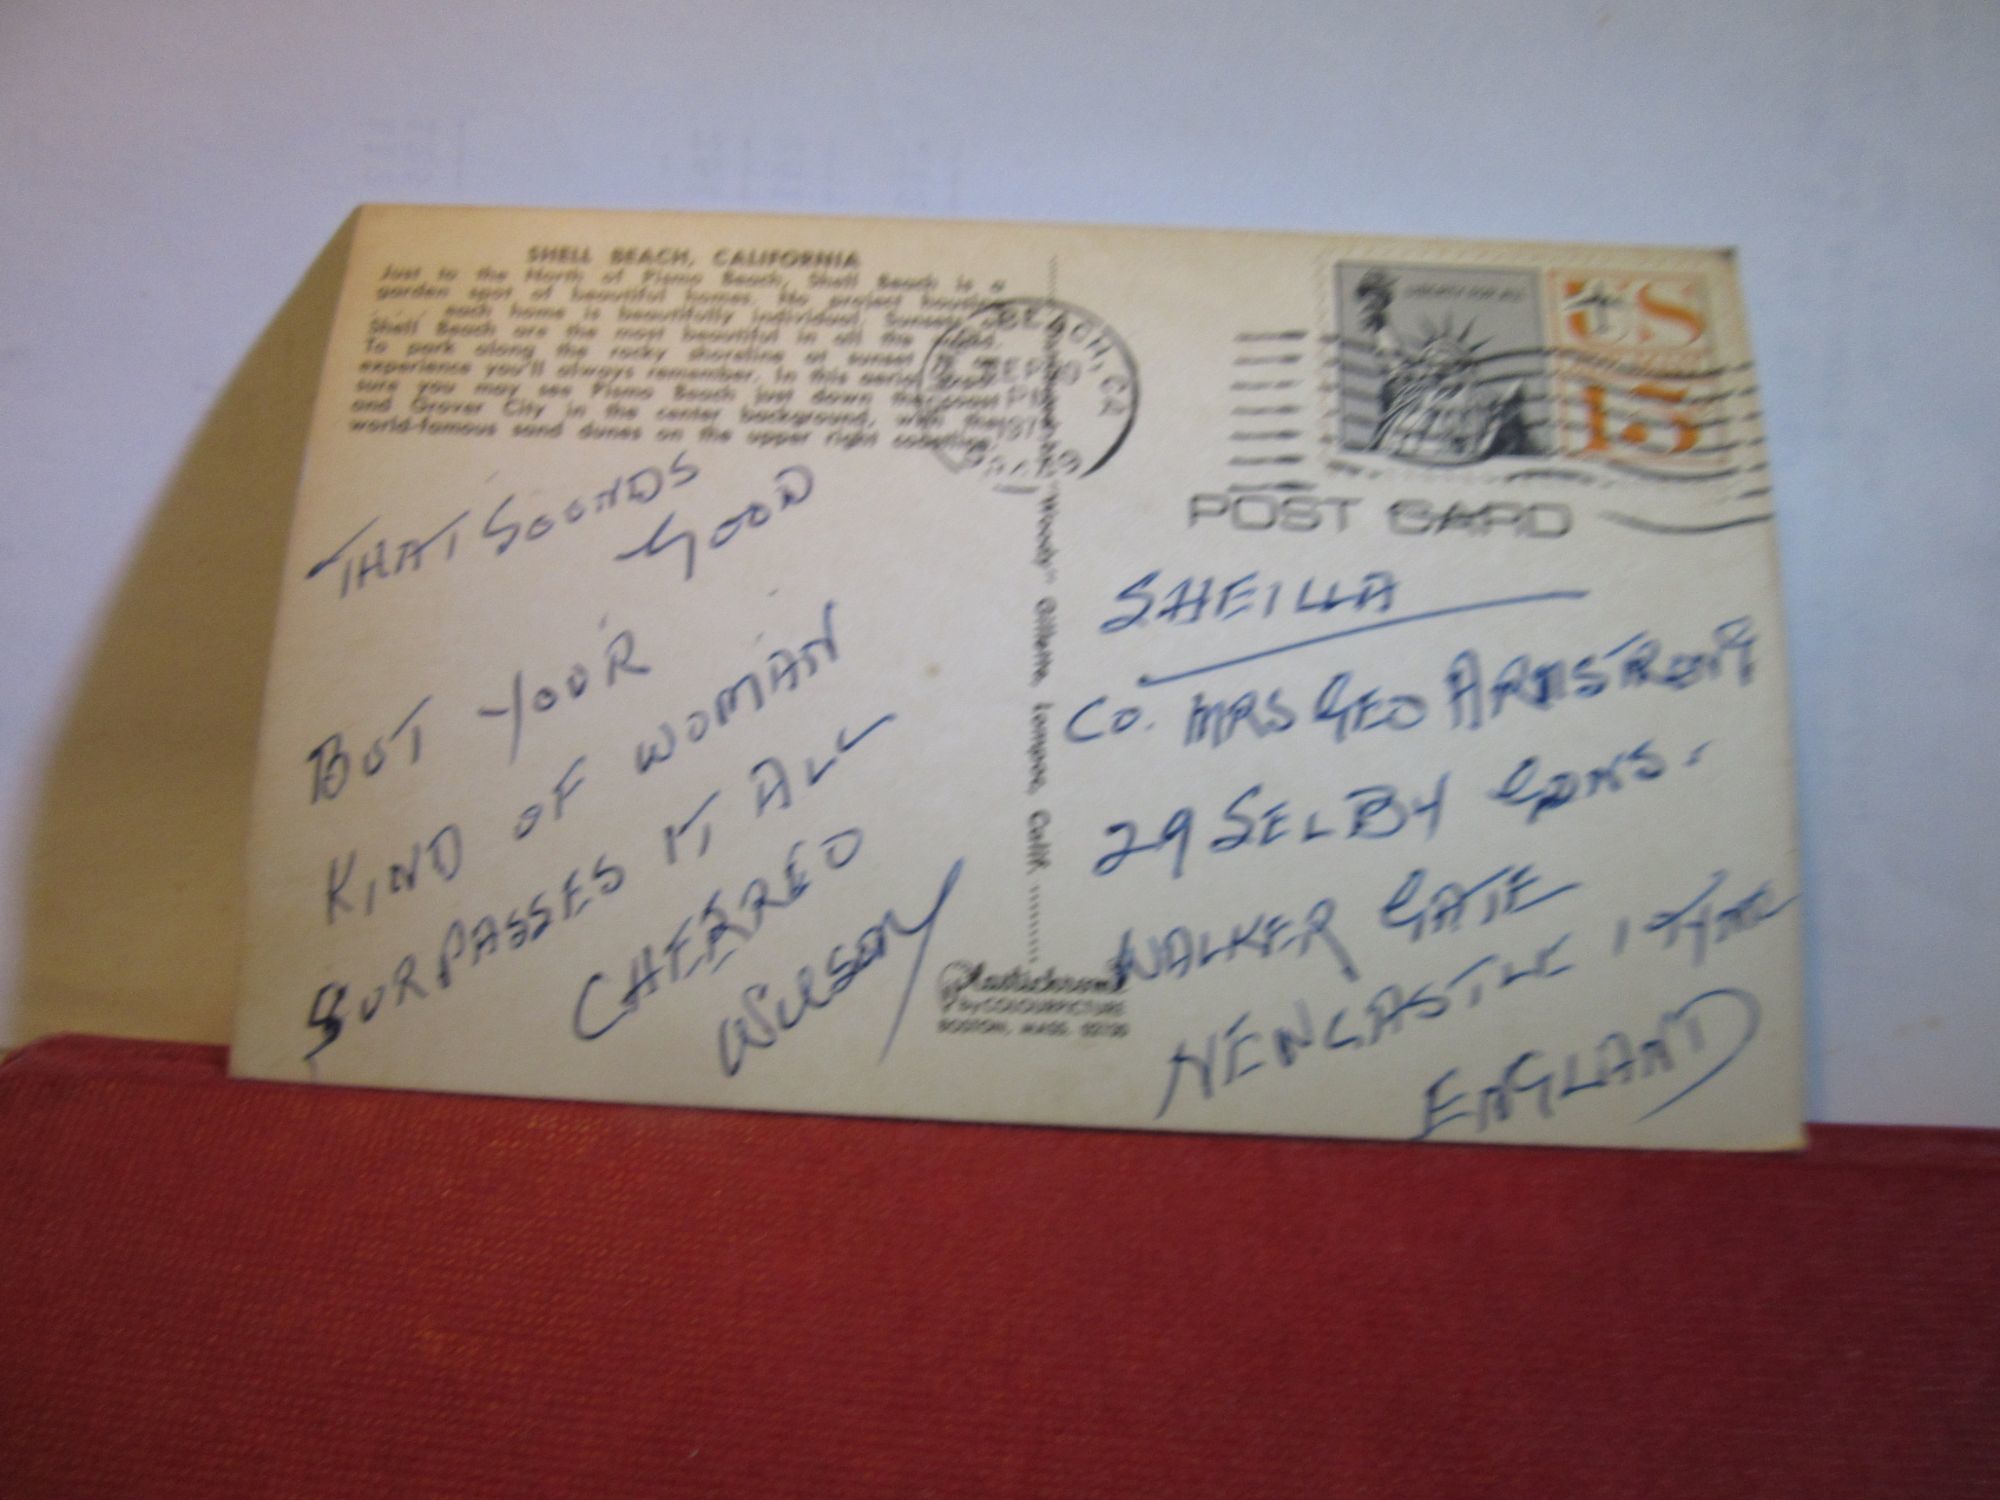 SHELL BEACH, CALIFORNIA
Just to the North of Pismo Beach, Shell Beach is a
garden spot of beautiful homes. No project housing
. . . each home is beautifully individual. Sunsets
Shell Beach are the most beautiful in all the
To park along the rocky shoreline at sunset is
experience you'll always remember. In this aerial
sure you may see Pismo Beach just down the coast
and Grover City in the center background, with the
world-famous sand dunes on the upper right
THAT SOUNDS
GOOD
BUT YOUR
KIND OF WOMAN
SURPASSES IT ALL
CHEERED
WILSON
"Woody" Gillette, Lompoc, Calif.
Plastichrome
by COLOURPICTURE
BOSTON, MASS. 02130
BEACH, CA
SEP
PM
US
15
POST CARD
SHEILLA
CO. MRS GEO ARMSTRONG
29 SELBY GDNS.
WALKER GATE
NEWCASTLE 1 TYNE
ENGLAND